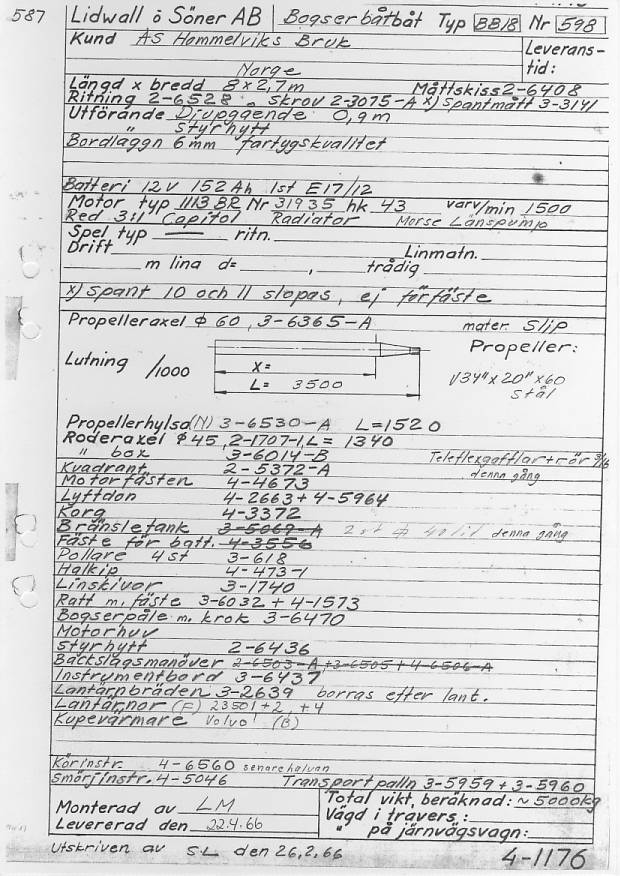 587 Lidwall & Söner AB Bogserbåtbåt Typ BB18 Nr 598
Kund AS Hommelviks Bruk Leverans-
tid:
Norge
Längd x bredd 8 x 2,7 m Måttskiss 2-6408
Ritning 2-6528 . Skrov 2-3075-A x) Spantmått 3-3141
Utförande Djupgående 0,9 m
" Styrhytt
Bordläggn 6 mm fartygskvalitet
Batteri 12 V 152 Ah 1st E17/12
Motor typ 1113 BR Nr 31935 hk 43 varv/min 1500
Red 3:1 Capitol Radiator Morse Länspump
Spel typ — ritn.
Drift Linmatn.
m lina d= , trådig
x) Spant 10 och 11 slopas, ej förfäste
Propelleraxel φ 60, 3-6365-A mater. SIP
Propeller:
Lutning /1000 X=
L= 3500
V34"x20"x60
Stål
Propellerhylsa (N) 3-6530-A L=1520
Roderaxel φ45, 2-1707-1, L= 1340
" box 3-6014-B Teleflexgafflar + rör 3/16
Kvadrant 2-5372-A denna gång
Motorfästen 4-4673
Lyftdon 4-2663 + 4-5964
Korg 4-3372
Bränsletank 3-5069-A 2 st φ 40 lit denna gång
Fäste för batt. 4-3556
Pollare 4 st 3-618
Halkip 4-473-1
Linskivor 3-1740
Ratt m. fäste 3-6032 + 4-1573
Bogserpåle m. krok 3-6470
Motorhuv
Styrhytt 2-6436
Backslagsmanöver 2-6503-A + 3-6505 + 4-6506-A
Instrumentbord 3-6437
Lantärnbräden 3-2639 borras efter lant.
Lantärnor (F) 23501 + 2, + 4
Kupévärmare Volvo (B)
Körinstr. 4-6560 senare halvan
Smörjinstr. 4-5046 Transportpalln 3-5959 + 3-5960
Monterad av LM Total vikt, beräknad: ~ 5000 kg
Levererad den 22.4.66 Vägd i travers:
" på järnvägsvagn:
Utskriven av SL den 26,2,66
4-1176